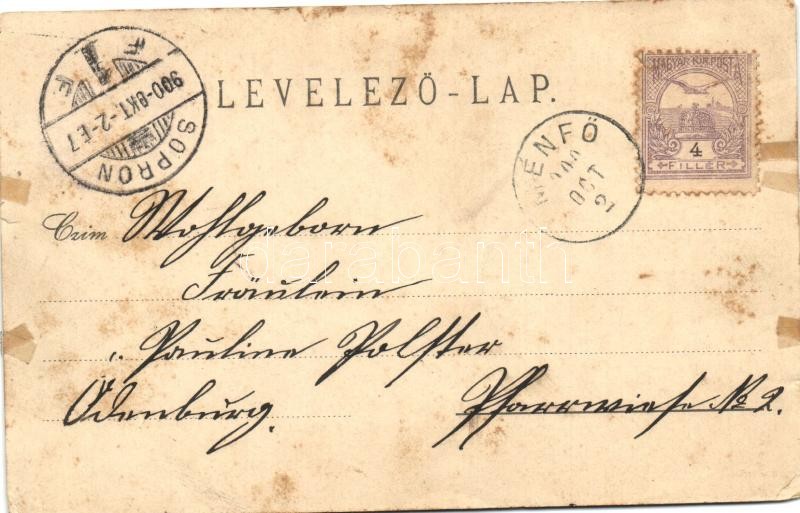 LEVELEZŐ-LAP.
SOPRON
900-OKT-2-E7
F F
MÉNFŐ
900
OCT
2
MAGYAR KIR. POSTA
4
FILLÉR
Czim Wohlgeborn
Fräulein
Pauline Polster
Ödenburg. Pfarrwiese No 2.
darabanth